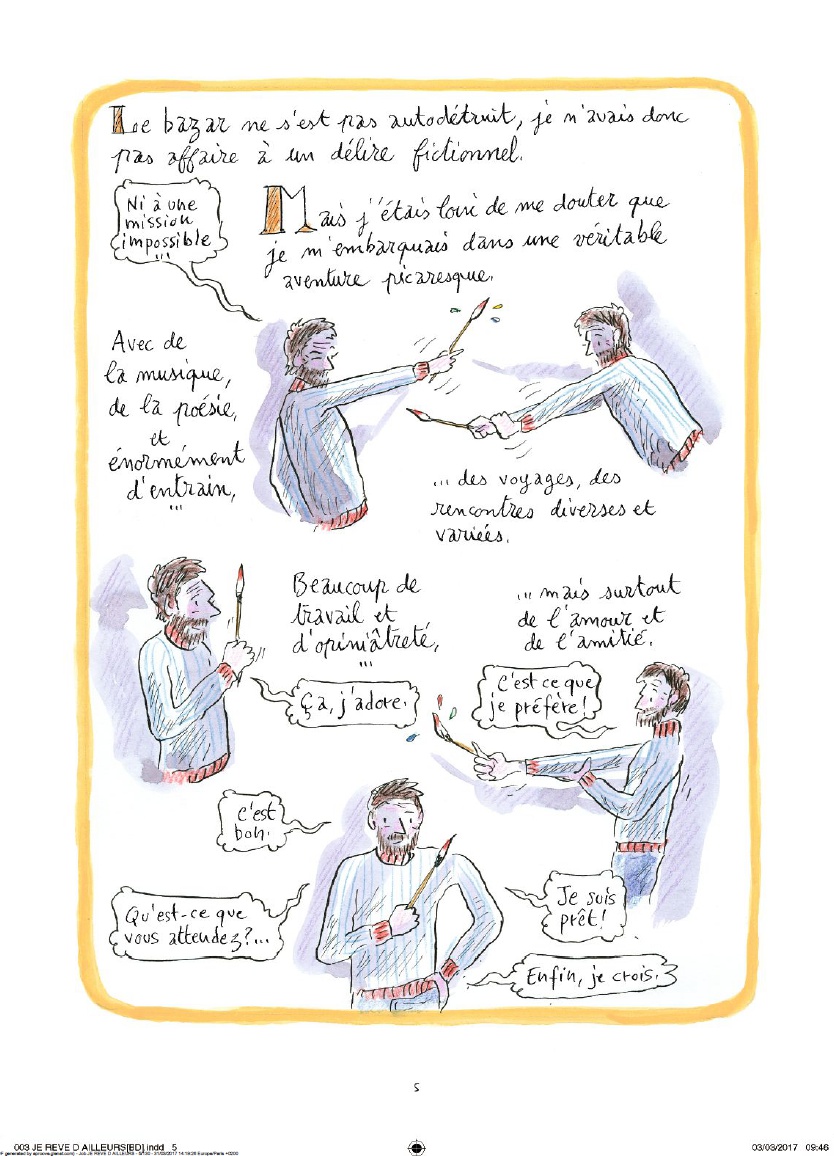 Le bazar ne s'est pas autodétruit, je n'avais donc
pas affaire à un délire fictionnel.
Ni à une
mission
impossible
...
Mais j'étais loin de me douter que
je m'embarquais dans une véritable
aventure picaresque.
Avec de
la musique,
de la poésie,
et
énormément
d'entrain,
...
... des voyages, des
rencontres diverses et
variées.
Beaucoup de
travail et
d'opiniâtreté,
...
Ça, j'adore.
... mais surtout
de l'amour et
de l'amitié.
C'est ce que
je préfère!
C'est
bon.
Qu'est-ce que
vous attendez?...
Je suis
prêt!
Enfin, je crois.
5
003 JE REVE D AILLEURS[BD].indd 5
03/03/2017 09:46